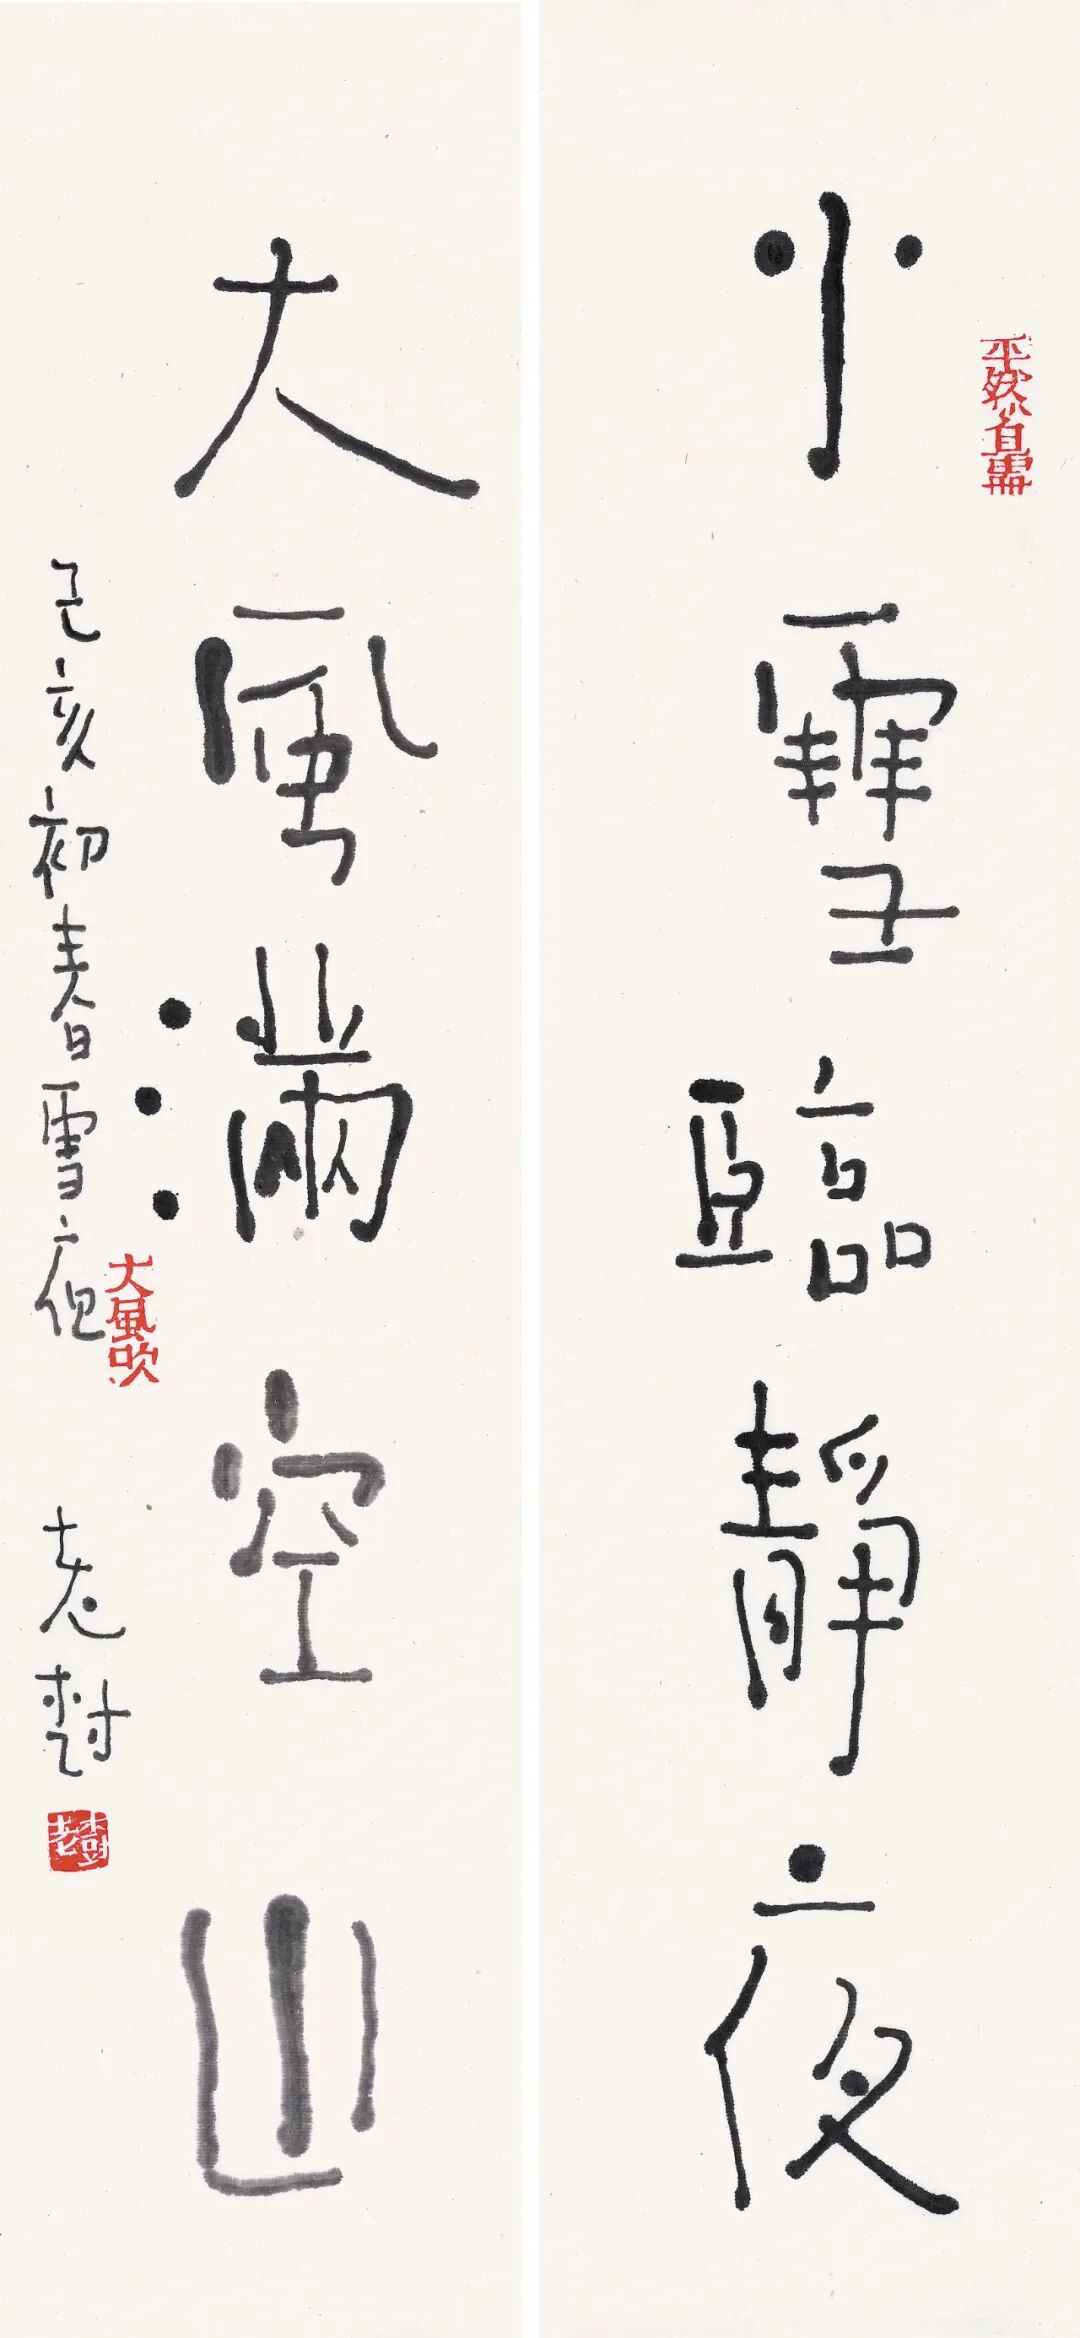 小雪臨靜夜
大風滿空山
己亥初春雪夜
老樹
大風吹
老樹